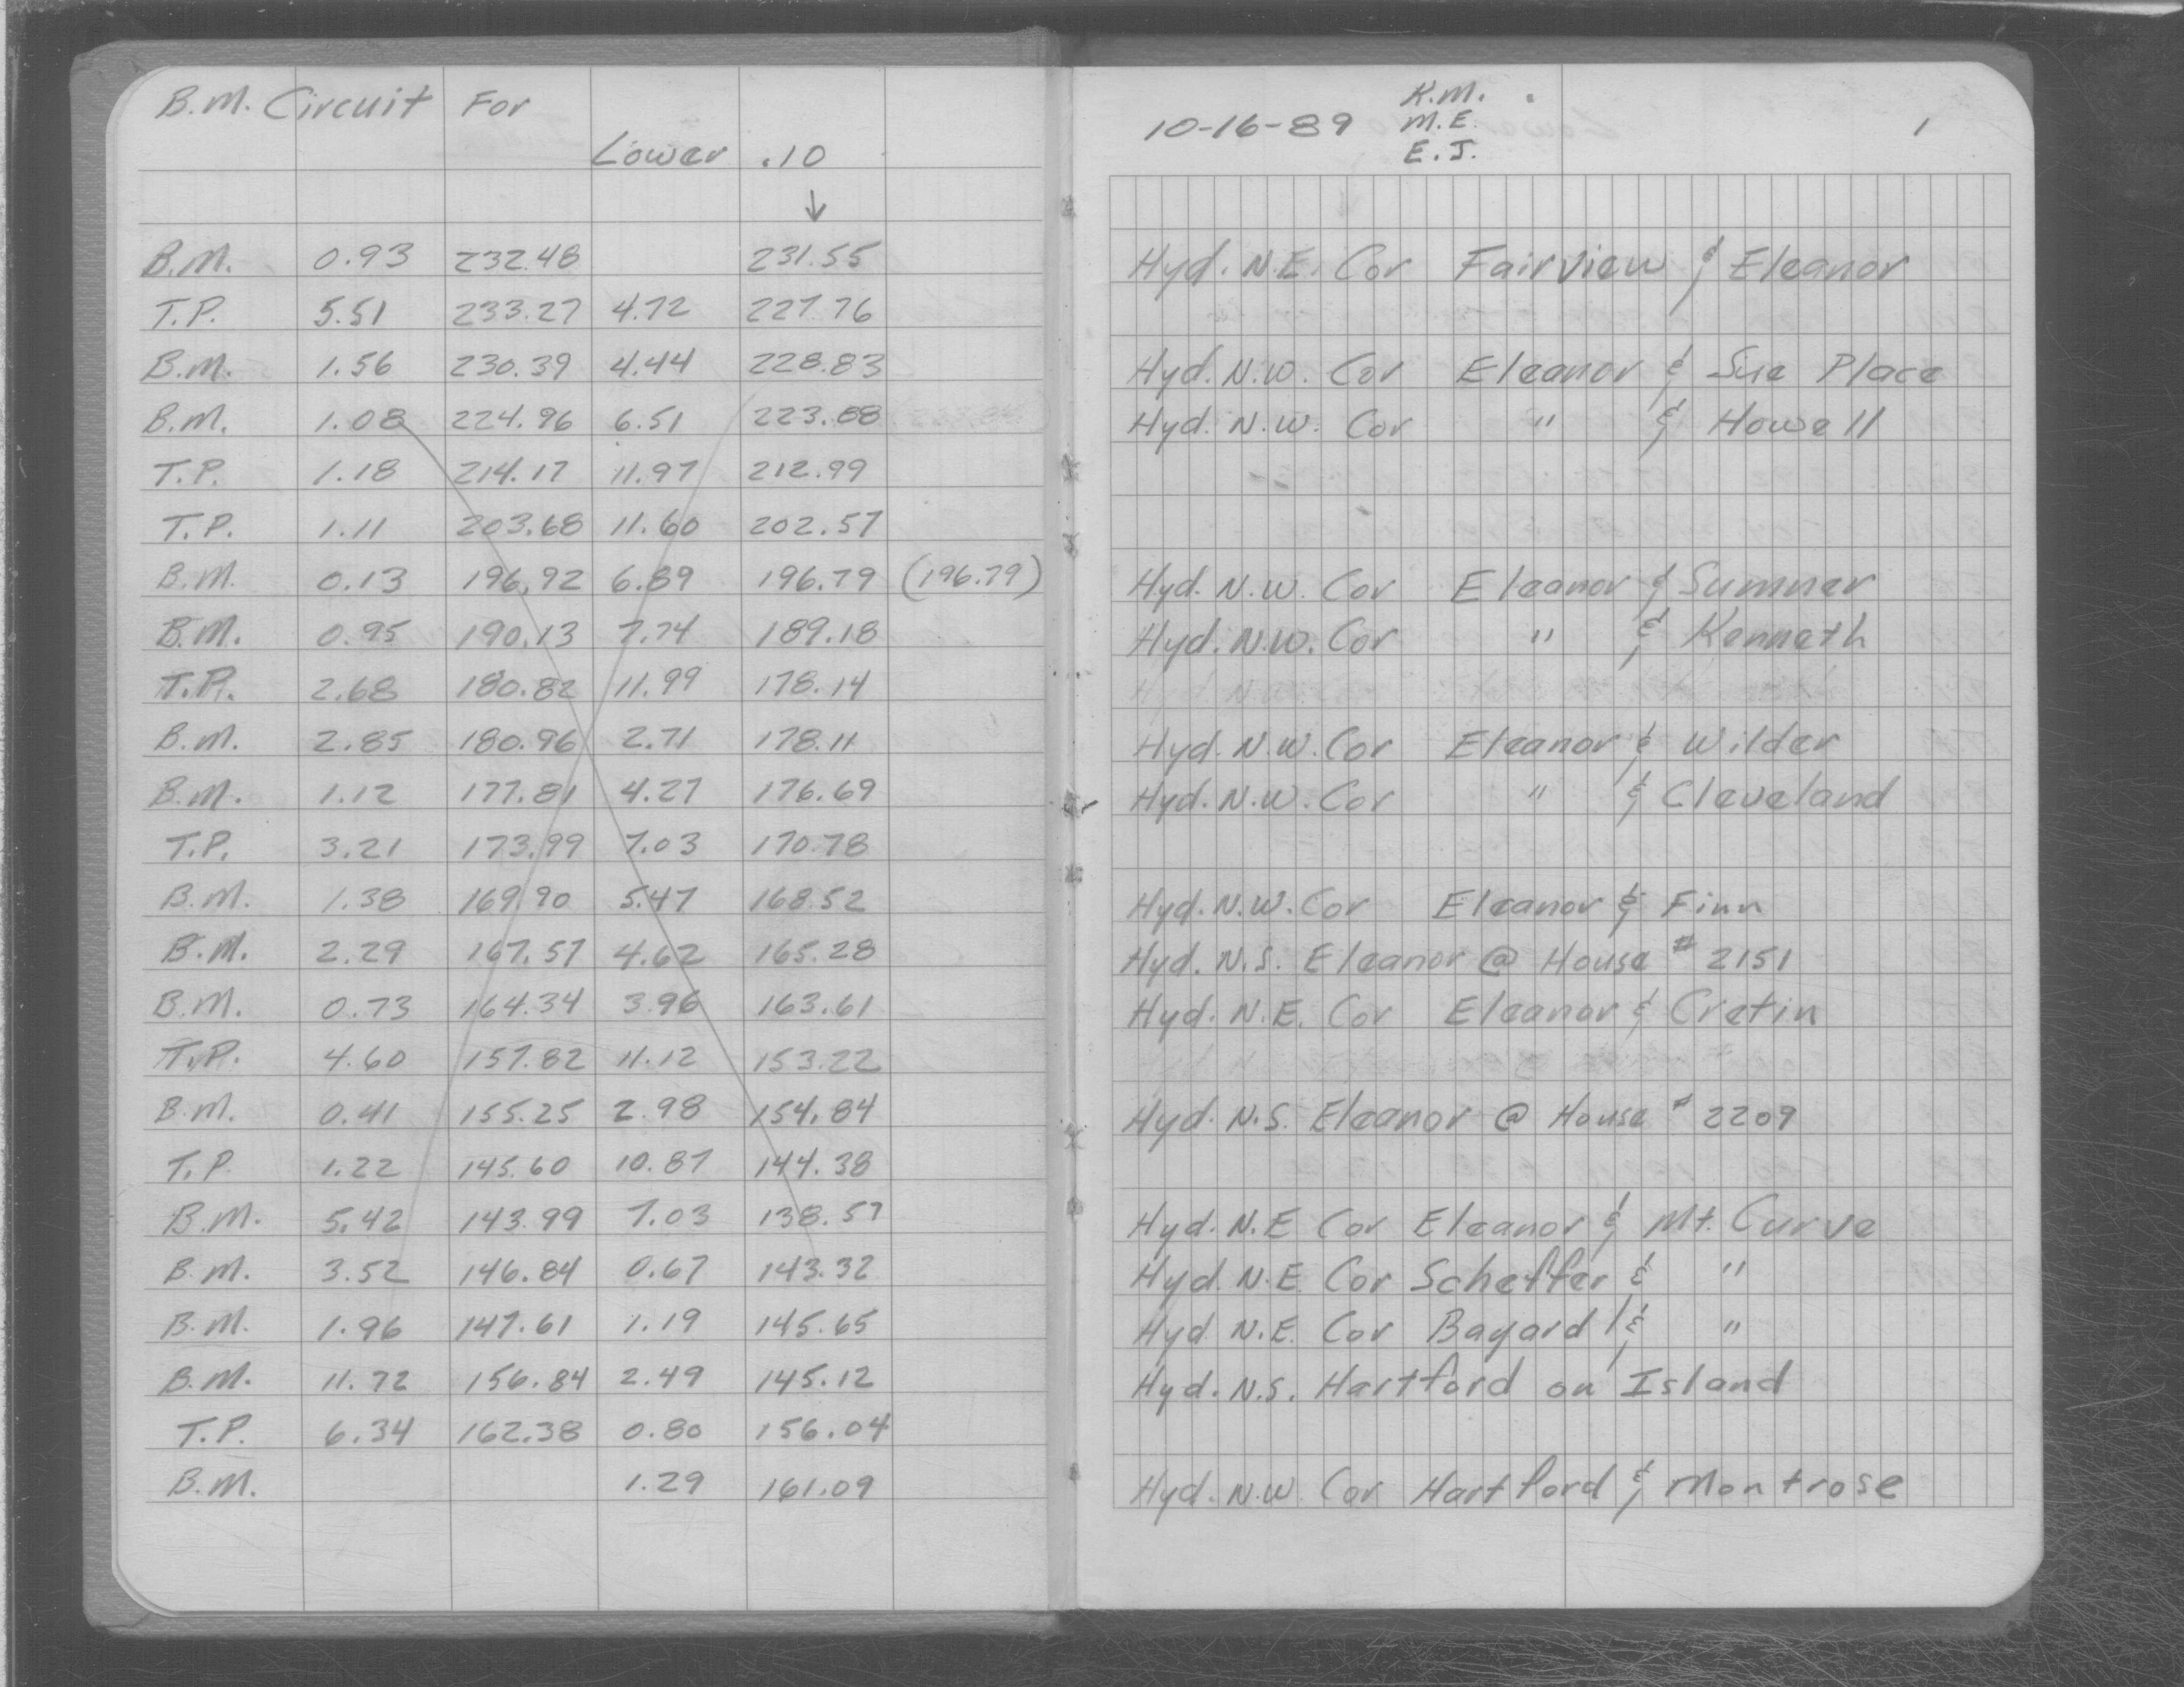 B.M. Circuit For
Lower .10
↓
B.M. 0.93 232.48 231.55
T.P. 5.51 233.27 4.72 227.76
B.M. 1.56 230.39 4.44 228.83
B.M. 1.08 224.96 6.51 223.88
T.P. 1.18 214.17 11.97 212.99
T.P. 1.11 203.68 11.60 202.57
B.M. 0.13 196.92 6.89 196.79 (196.79)
B.M. 0.95 190.13 7.74 189.18
T.P. 2.68 180.82 11.99 178.14
B.M. 2.85 180.96 2.71 178.11
B.M. 1.12 177.81 4.27 176.69
T.P. 3.21 173.99 7.03 170.78
B.M. 1.38 169.90 5.47 168.52
B.M. 2.29 167.57 4.62 165.28
B.M. 0.73 164.34 3.96 163.61
T.P. 4.60 157.82 11.12 153.22
B.M. 0.41 155.25 2.98 154.84
T.P. 1.22 145.60 10.87 144.38
B.M. 5.42 143.99 7.03 138.57
B.M. 3.52 146.84 0.67 143.32
B.M. 1.96 147.61 1.19 145.65
B.M. 11.72 156.84 2.49 145.12
T.P. 6.34 162.38 0.80 156.04
B.M. 1.29 161.09
K.M.
10-16-89 M.E. 1
E.J.
Hyd. N.E. Cor Fairview & Eleanor
Hyd. N.W. Cor Eleanor & Sue Place
Hyd. N.W. Cor " & Howell
Hyd. N.W. Cor Eleanor & Sumner
Hyd. N.W. Cor " & Kenneth
Hyd. N.W. Cor Eleanor & Wilder
Hyd. N.W. Cor " & Cleveland
Hyd. N.W. Cor Eleanor & Finn
Hyd. N.S. Eleanor @ House # 2151
Hyd. N.E. Cor Eleanor & Cretin
Hyd. N.S. Eleanor @ House # 2209
Hyd. N.E Cor Eleanor & Mt. Curve
Hyd. N.E. Cor Scheffer & "
Hyd N.E. Cor Bayard & "
Hyd. N.S. Hartford on Island
Hyd. N.W. Cor Hartford & Montrose